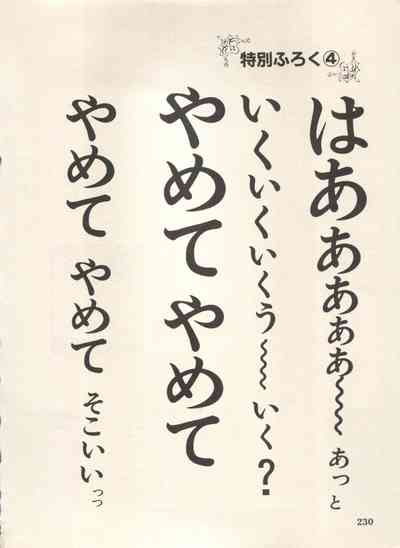 特別ふろく④
はあぁぁぁぁ〜〜〜 あっと
いくいくいくう〜〜 いく?
やめて やめて
やめて やめて そこいいっっ
230